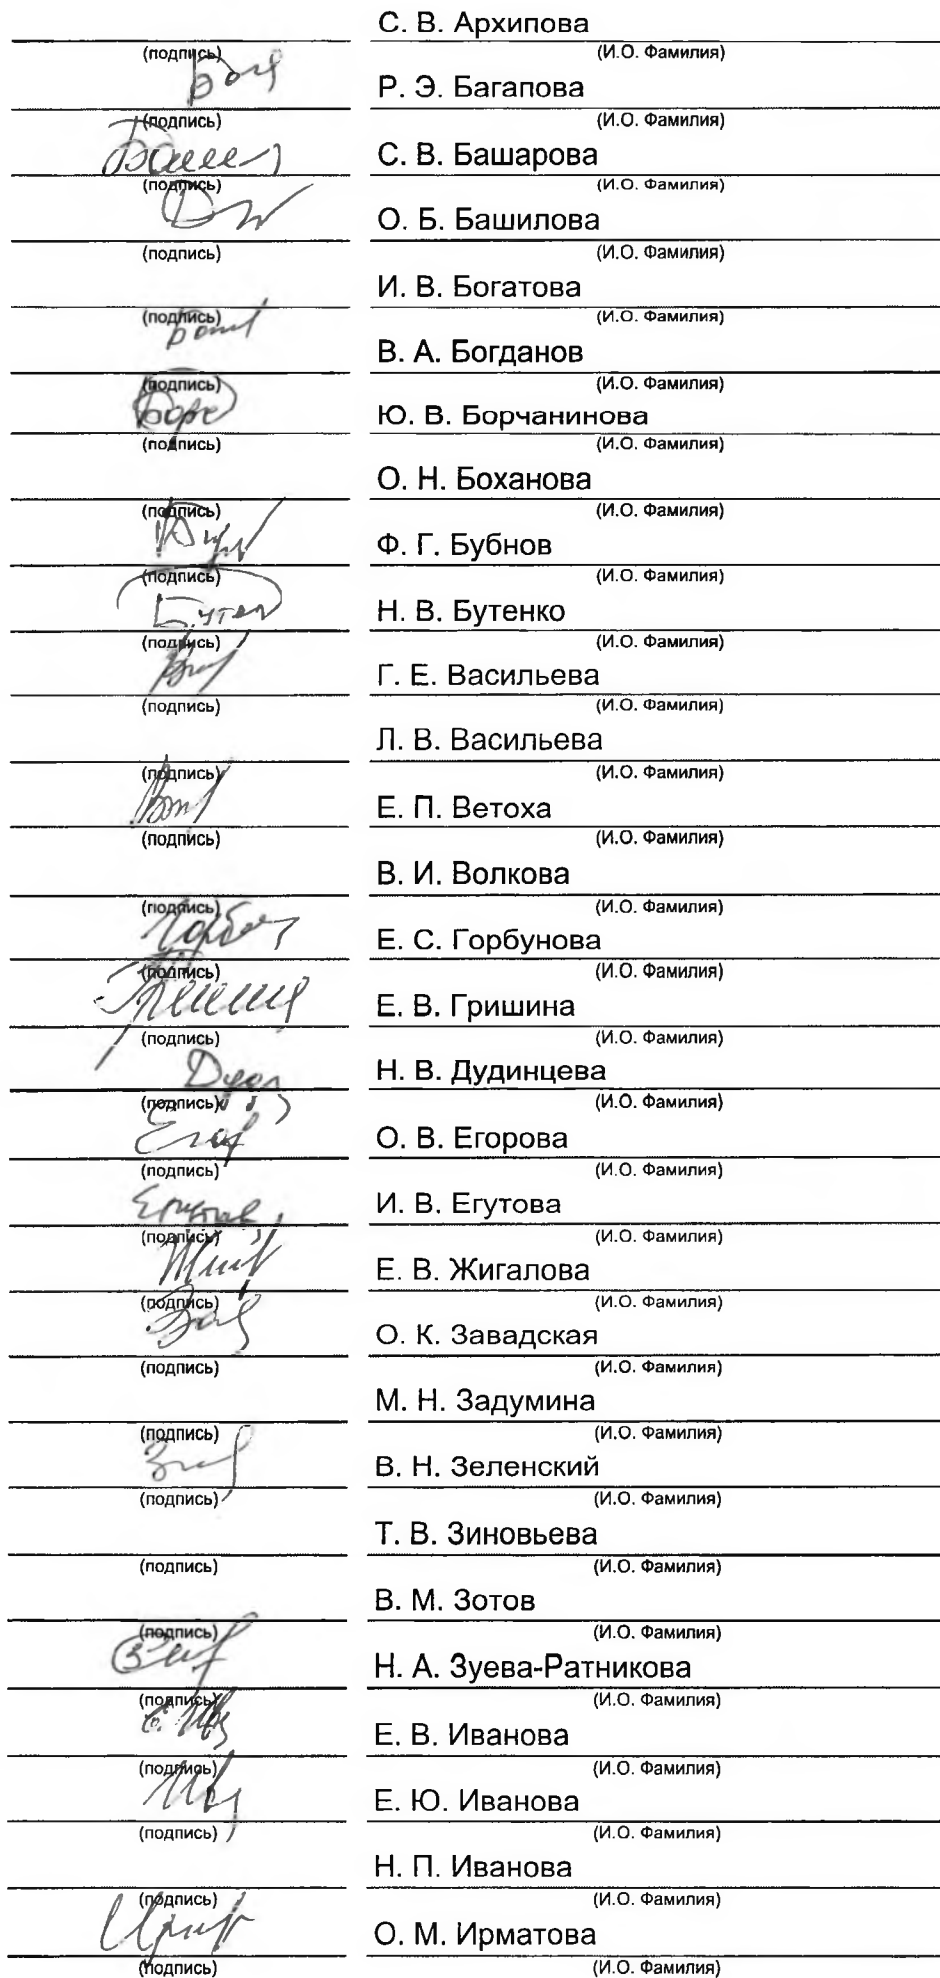 С. В. Архипова
(подпись) (И.О. Фамилия)
Р. Э. Багапова
(подпись) (И.О. Фамилия)
С. В. Башарова
(подпись) (И.О. Фамилия)
О. Б. Башилова
(подпись) (И.О. Фамилия)
И. В. Богатова
(подпись) (И.О. Фамилия)
В. А. Богданов
(подпись) (И.О. Фамилия)
Ю. В. Борчанинова
(подпись) (И.О. Фамилия)
О. Н. Боханова
(подпись) (И.О. Фамилия)
Ф. Г. Бубнов
(подпись) (И.О. Фамилия)
Н. В. Бутенко
(подпись) (И.О. Фамилия)
Г. Е. Васильева
(подпись) (И.О. Фамилия)
Л. В. Васильева
(подпись) (И.О. Фамилия)
Е. П. Ветоха
(подпись) (И.О. Фамилия)
В. И. Волкова
(подпись) (И.О. Фамилия)
Е. С. Горбунова
(подпись) (И.О. Фамилия)
Е. В. Гришина
(подпись) (И.О. Фамилия)
Н. В. Дудинцева
(подпись) (И.О. Фамилия)
О. В. Егорова
(подпись) (И.О. Фамилия)
И. В. Егутова
(подпись) (И.О. Фамилия)
Е. В. Жигалова
(подпись) (И.О. Фамилия)
О. К. Завадская
(подпись) (И.О. Фамилия)
М. Н. Задумина
(подпись) (И.О. Фамилия)
В. Н. Зеленский
(подпись) (И.О. Фамилия)
Т. В. Зиновьева
(подпись) (И.О. Фамилия)
В. М. Зотов
(подпись) (И.О. Фамилия)
Н. А. Зуева-Ратникова
(подпись) (И.О. Фамилия)
Е. В. Иванова
(подпись) (И.О. Фамилия)
Е. Ю. Иванова
(подпись) (И.О. Фамилия)
Н. П. Иванова
(подпись) (И.О. Фамилия)
О. М. Ирматова
(подпись) (И.О. Фамилия)